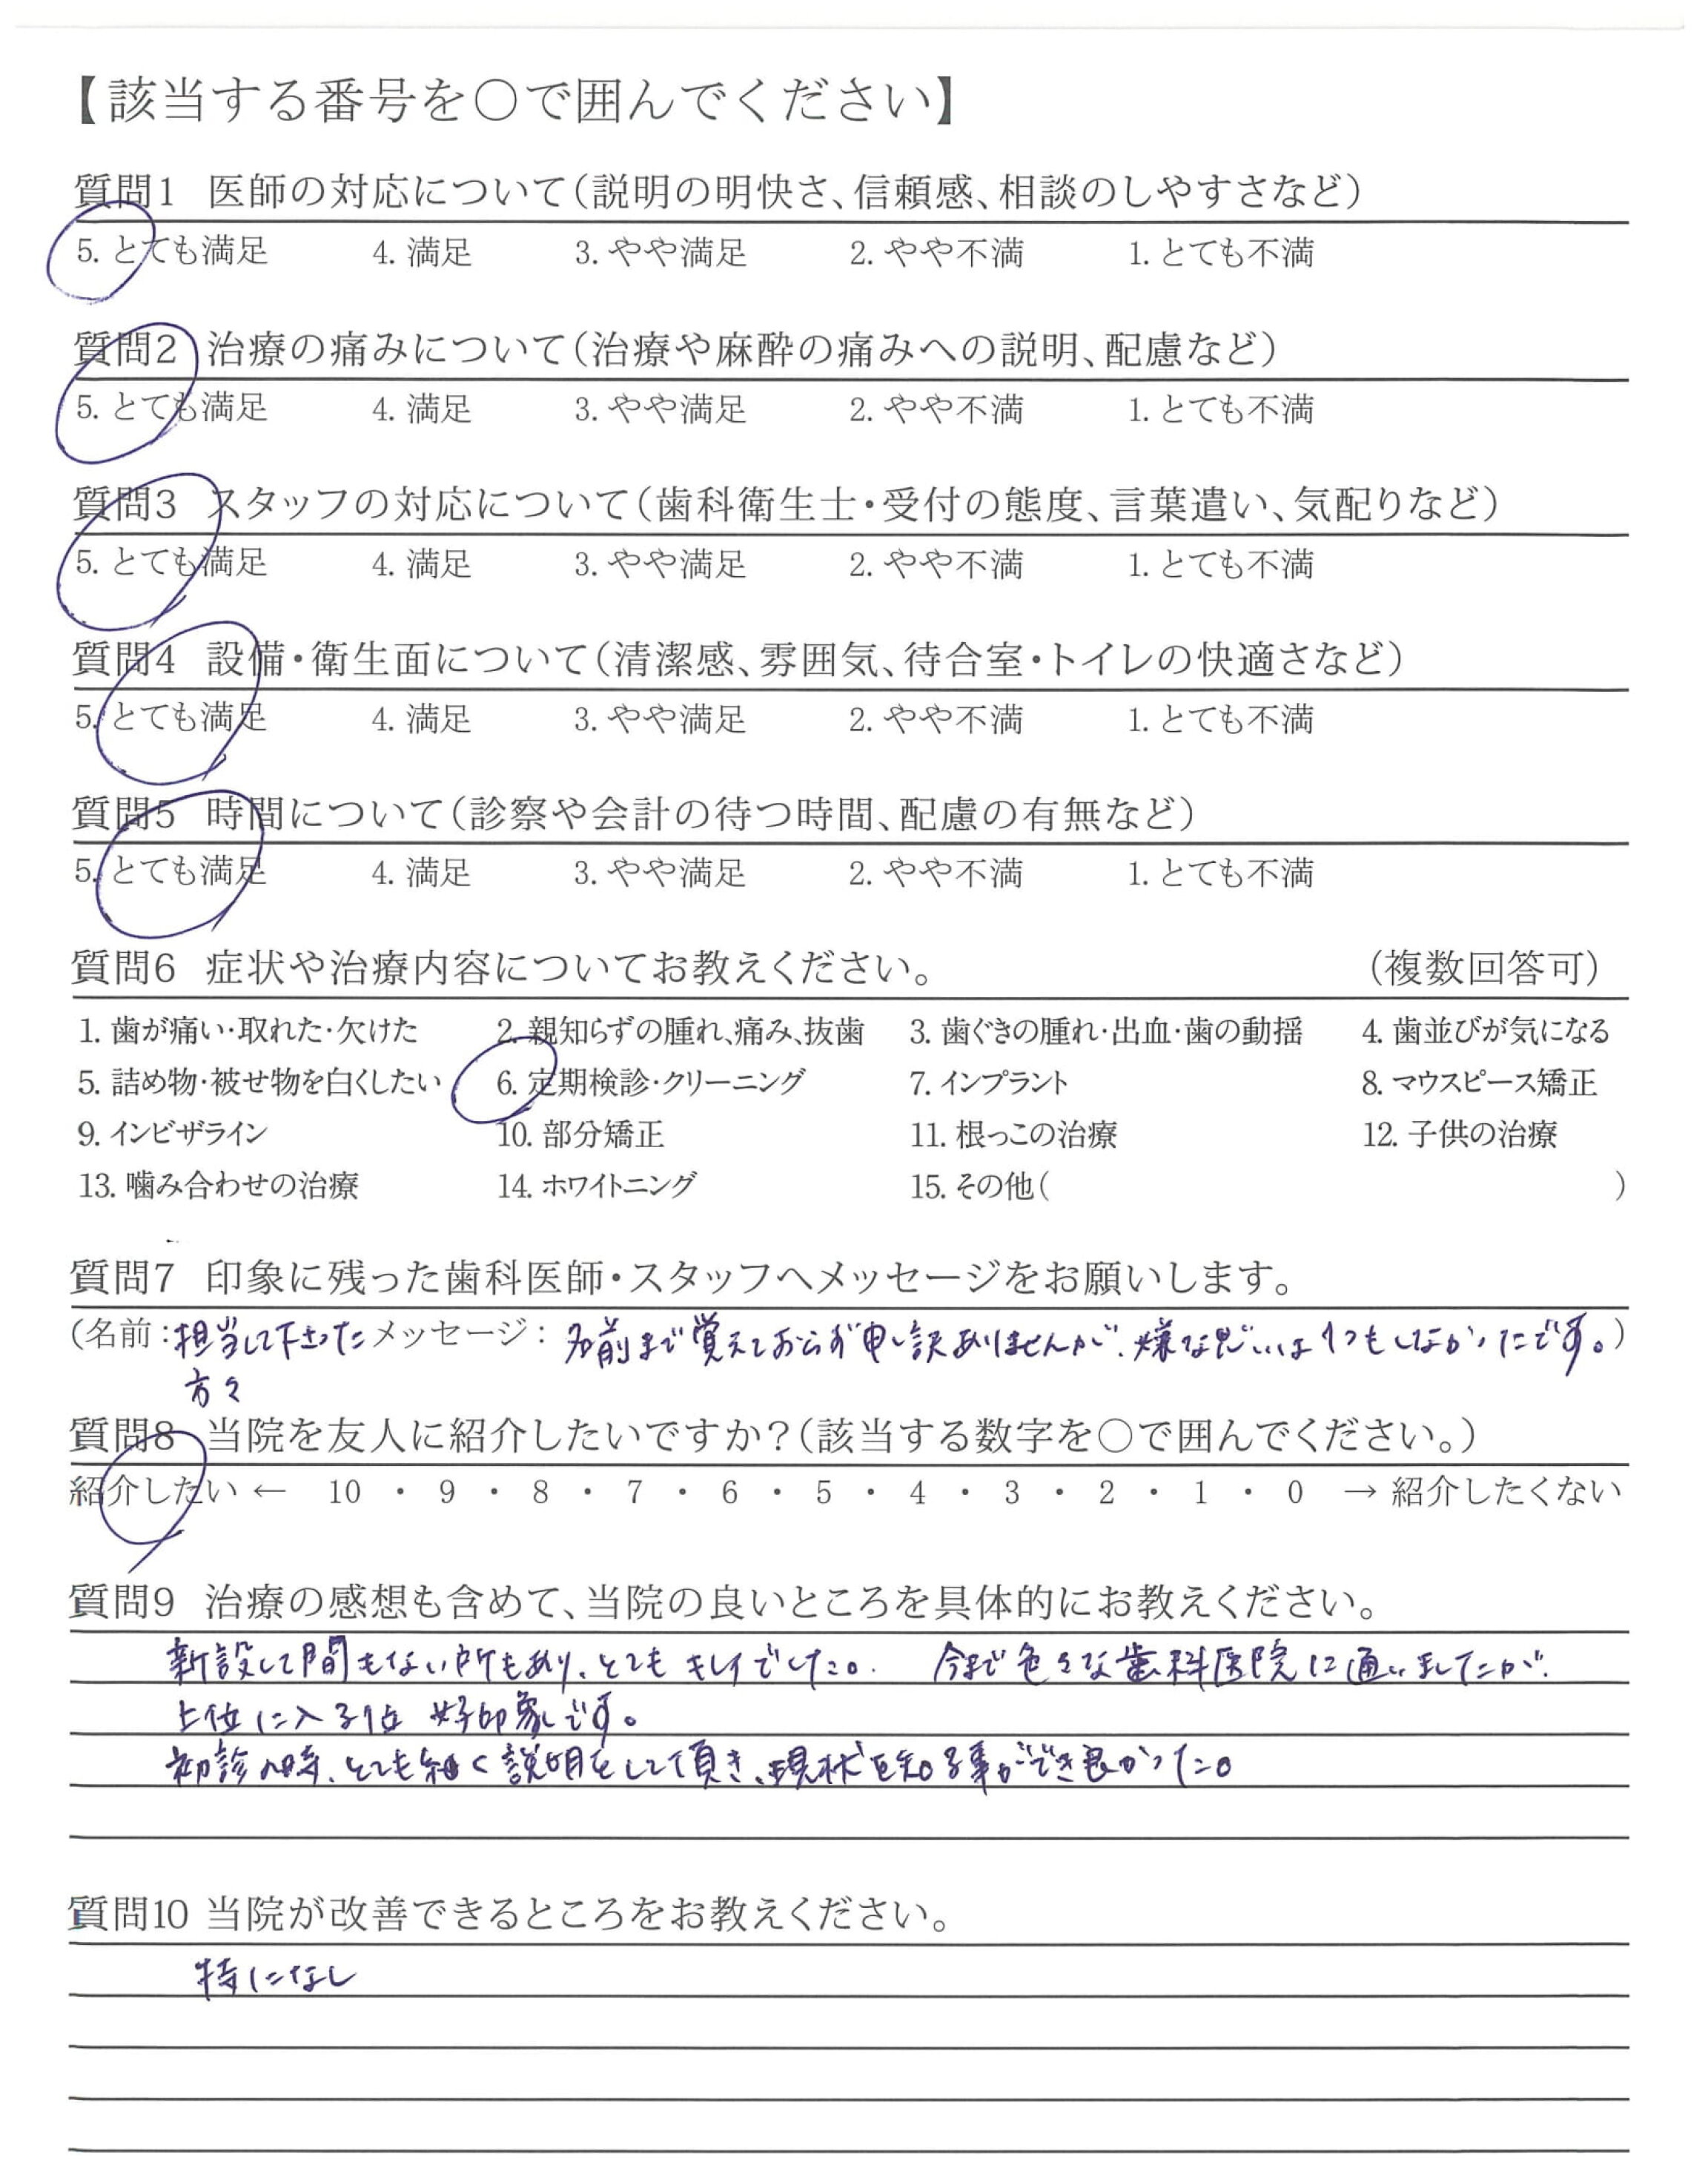 【該当する番号を○で囲んでください】
質問1 医師の対応について(説明の明快さ、信頼感、相談のしやすさなど)
5. とても満足 4. 満足 3. やや満足 2. やや不満 1. とても不満
質問2 治療の痛みについて(治療や麻酔の痛みへの説明、配慮など)
5. とても満足 4. 満足 3. やや満足 2. やや不満 1. とても不満
質問3 スタッフの対応について(歯科衛生士・受付の態度、言葉遣い、気配りなど)
5. とても満足 4. 満足 3. やや満足 2. やや不満 1. とても不満
質問4 設備・衛生面について(清潔感、雰囲気、待合室・トイレの快適さなど)
5. とても満足 4. 満足 3. やや満足 2. やや不満 1. とても不満
質問5 時間について(診察や会計の待つ時間、配慮の有無など)
5. とても満足 4. 満足 3. やや満足 2. やや不満 1. とても不満
質問6 症状や治療内容についてお教えください。 (複数回答可)
1. 歯が痛い・取れた・欠けた 2. 親知らずの腫れ、痛み、抜歯 3. 歯ぐきの腫れ・出血・歯の動揺 4. 歯並びが気になる
5. 詰め物・被せ物を白くしたい 6. 定期検診・クリーニング 7. インプラント 8. マウスピース矯正
9. インビザライン 10. 部分矯正 11. 根っこの治療 12. 子供の治療
13. 噛み合わせの治療 14. ホワイトニング 15. その他( )
質問7 印象に残った歯科医師・スタッフへメッセージをお願いします。
(名前:担当して下さった メッセージ: 名前まで覚えておらず申し訳ありませんが、嫌な思いは1つもしなかったです。)
方々
質問8 当院を友人に紹介したいですか?(該当する数字を○で囲んでください。)
紹介したい ← 10 ・ 9 ・ 8 ・ 7 ・ 6 ・ 5 ・ 4 ・ 3 ・ 2 ・ 1 ・ 0 → 紹介したくない
質問9 治療の感想も含めて、当院の良いところを具体的にお教えください。
新設して間もない所もあり、とてもキレイでした。 今まで色々な歯科医院に通いましたが、
上位に入る位 好印象です。
初診の時、とても細く説明をして頂き、現状を知る事ができ良かった。
質問10 当院が改善できるところをお教えください。
特になし